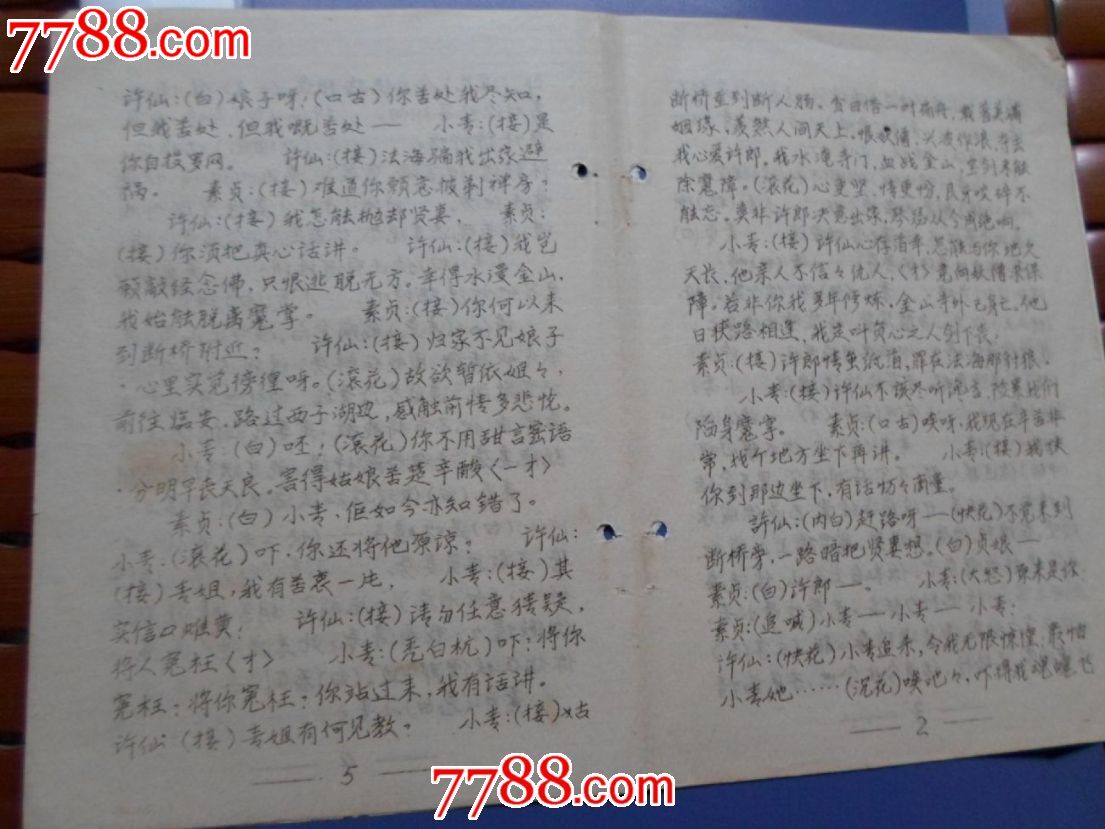 7788.com
7788.com
许仙:(白)娘子呀!(口古)你苦处我尽知,
但我苦处,但我嘅苦处—— 小青:(接)是
你自投罗网。 许仙:(接)法海骗我出家避
祸。 素贞:(接)难道你愿意披剃禅房?
许仙:(接)我怎能抛却贤妻, 素贞:
(接)你须把真心话讲。 许仙:(接)我岂
愿敲经念佛,只恨逃脱无方。幸得水漫金山,
我始能脱离魔掌。 素贞:(接)你何以来
到断桥附近? 许仙:(接)归家不见娘子
·心里实觉徬徨呀。(滚花)故欲暂依姐々,
前往临安,路过西子湖边,感触前情多悲忱。
小青:(白)呸!(滚花)你不用甜言蜜语
·分明早丧天良。害得姑娘苦楚辛酸〈一才〉
素贞:(白)小青,佢如今亦知错了。
小青:(滚花)吓·你还将他原谅? 许仙:
(接)青姐,我有苦衷一片, 小青:(接)其
实信口雌黄! 许仙:(接)请勿任意猜疑,
将人冤枉〈才〉 小青:(秃白杭)吓!将你
冤枉?将你冤枉?你站过来,我有话讲。
许仙:(接)青姐有何见教? 小青:(接)
5
断桥至到断人肠。
姻缘,羡然人间天上。恨妖僧,兴波作浪,夺去
我心爱许郎。我水淹寺门,血战金山,
除魔障。(滚花)心更坚,情更怆,
能忘。莫非许郎决意出家,
小青:(接)许仙心存消幸,怎能与你地久
天长,他亲人不信々优人,〈才〉竟向妖僧求保
障。若非你我多年修炼,金山寺外已身亡。他
日狭路相逢,我定叫负心之人剑下丧。
素贞:(接)许郎情虽纸薄,罪在法海那奸狼。
小青:(接)许仙不该尽听谗言,险累我们
陷身魔掌。 素贞:(口古)唉呀,我现在辛苦非
常,找个地方坐下再讲。 小青:(接)我扶
你到那边坐下,有话切々商量。
許仙:(内白)赶路呀——(快花)不觉来到
断桥旁,一路暗把贤妻想。(白)贞娘——
素贞:(白)许郎——。 小青:(大怒)原来是你
素贞:(追喊)小青——小青——小青!
许仙:(快花)小青追来,令我无限惊惶,最怕
小青她……(沉花)唉吔々,吓得我魂魄飞
2
7788.com